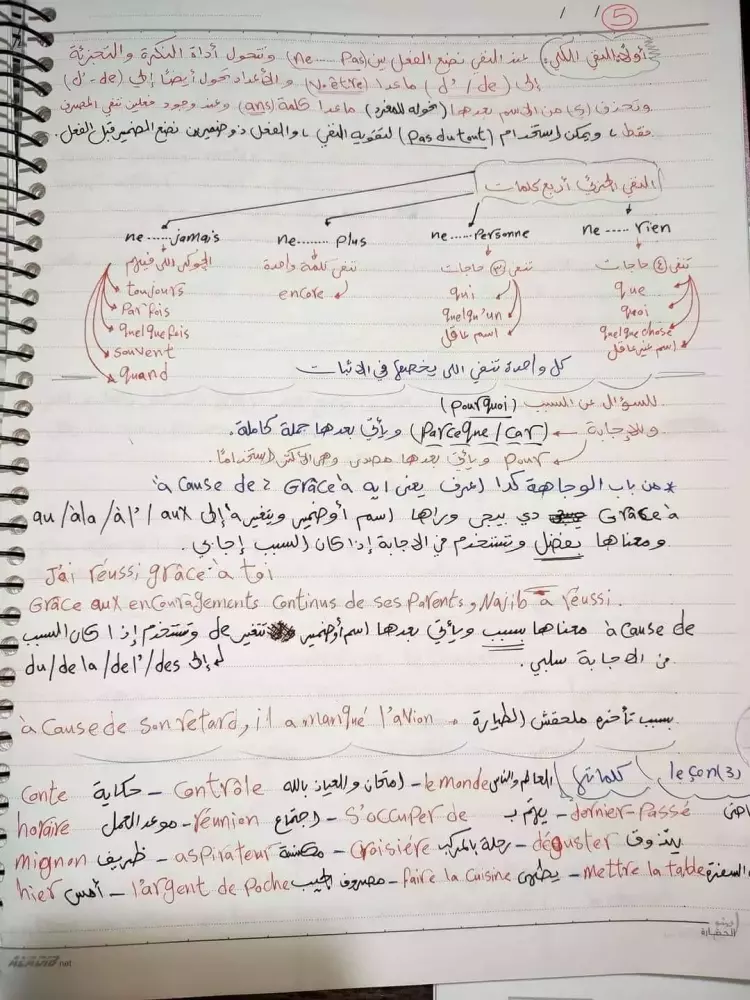 5
/ /
أولاً: النفى الكلى: عند النفى نضع الفعل بين (ne .... Pas) وتتحول أداة النكرة والتجزئة
إلى (d' / de) ماعدا (v. être) والأعداد تحول أيضًا إلى (d' - de)
وتحذف (s) من الاسم بعدها (نحوله للمفرد) ماعدا كلمة (ans) وعند وجود فعلين ننفى المصرف
فقط، ويمكن استخدام (Pas du tout) لتقوية النفى، والفعل ذو ضميرين نضع الضمير قبل الفعل.
النفى الجزئى أربع كلمات
ne ...... jamais ne ........ plus ne ...... Personne ne ..... rien
تنفى كلمة واحدة تنفى (٣) حاجات تنفى (٤) حاجات
toujours encore qui que
Parfois quelqu'un quoi
quelquefois اسم عاقل quelque chose
souvent اسم غير عاقل
quand
كل واحدة تنفى اللى يخصها فى الاثبات
للسؤال عن السبب (pourquoi)
وللإجابة ← (Parceque / Car) ويأتى بعدها جملة كاملة.
pour ويأتى بعدها مصدر وهى الأكثر استخدامًا.
* من باب الوجاهة كدا اعرف يعنى ايه Grâce à و à Cause de
Grâce à دي بيجى وراها اسم أو ضمير ويتغير à إلى au / à la / à l' / aux
ومعناها بفضل وتستخدم فى الاجابة إذا كان السبب إجابي.
J'ai réussi grâce à toi
Grâce aux encouragements continus de ses Parents, Najib a réussi.
à Cause de معناها بسبب ويأتى بعدها اسم أو ضمير تتغير de وتستخدم إذا كان السبب
من الاجابة سلبي. إلى du / de la / del' / des
à Cause de son retard, il a manqué l'avion . بسبب تأخره ملحقش الطيارة
leçon (3) كلماتها
العالم والناس le monde - امتحان والعياذ بالله Contrôle - حكاية Conte
dernier - Passé - يهتم بـ S'occuper de - اجتماع réunion - موعد العمل horaire
يتذوق déguster - رحلة بالمركب Croisière - مكنسة aspirateur - ظريف mignon
السفرة mettre la table - يطهى faire la Cuisine - مصروف الجيب l'argent de Poche - أمس hier
.net